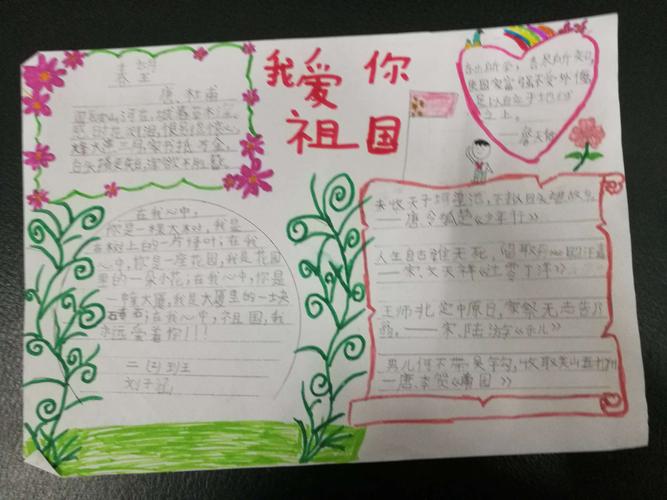 我爱你
祖国
春望
唐、杜甫
国破山河在,城春草木深,
感时花溅泪,恨别鸟惊心,
烽火连三月,家书抵万金,
白头搔更短,浑欲不胜簪。
尽所学,
使国家富强不受外侮,
足以自立于地球
之上。
——詹天佑
在我心中,
你是一棵大树,我是
大树上的一片绿叶;在我
心中,你是一座花园,我是花园
里的一朵小花;在我心中,你是
一幢大厦,我是大厦里的一块
石砖;在我心中,祖国,我
永远爱着你!!!
二(2)班
刘子
未收天子河湟地,不拟回头望故乡。
——唐令狐楚《少年行》
人生自古谁无死,留取丹心照汗青
——宋、文天祥《过零丁洋》
王师北定中原日,家祭无忘告乃
翁。——宋、陆游《示儿》
男儿何不带吴钩,收取关山五十州
—唐李贺《南园》